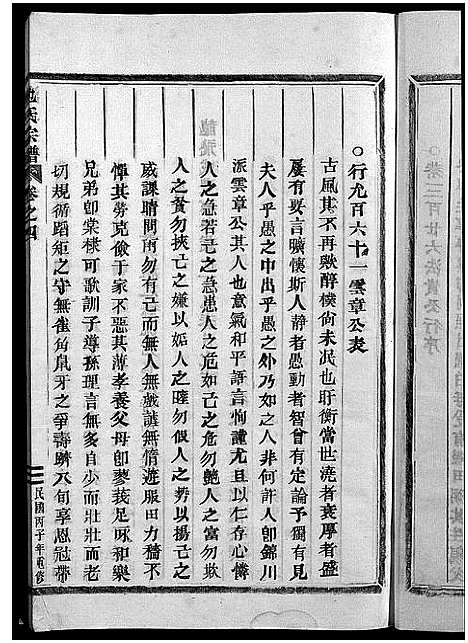 ○行九百六十一雲章公㐮
古風其不再歟醇樸尚未泯也盱衡當世澆者衰厚者盛
屢有要言曠懷斯人靜者愚動者智曾有定論予獨有見
夫人乎愚之中出乎愚之外乃如之人非何許人即錦川
派雲章公其人也意氣和平語言恂謹尤且以仁存心憐
人之急若己之急患人之危如己之危勿艷人之富勿欺
人之貧勿挾己之嫌以姤人之睦勿假人之勢以揚己之
威課晴問雨勿有己而無人無戲謔無惰遊服田力穡不
憚其勞克儉于家不惡其薄孝養父母卽蓼莪足咏和樂
兄弟卽棠棣可歌訓子導孫理言無多自少而壯壯而老
切規循蹈矩之守無雀角鼠牙之爭壽躋六旬享恩冠帶
氏宗譜
卷之四
民國丙子年重修